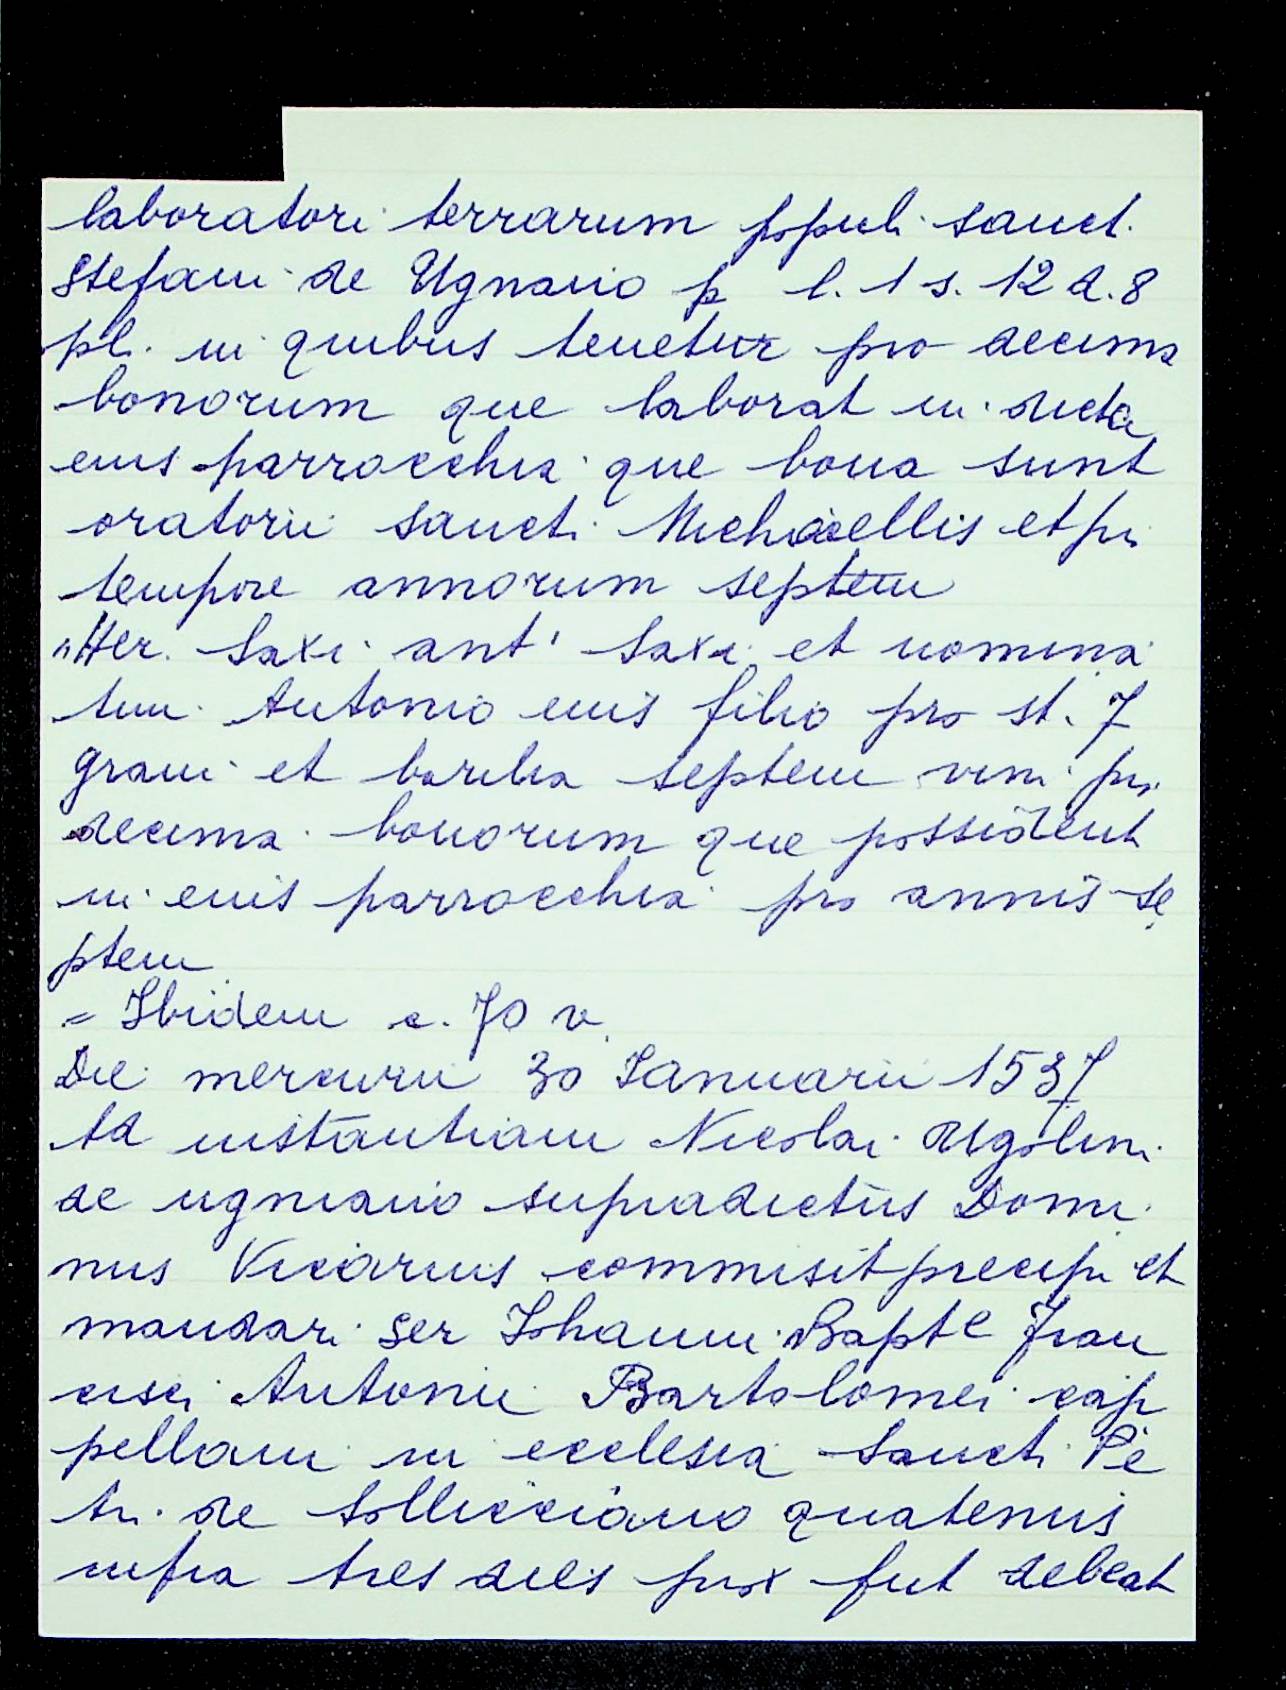 laboratori terrarum populi sancti
Stefani de Ugnano p l. 1 s. 12 d. 8
pli. in quibus tenetur pro decima
bonorum que laborat in dicta
eius parrocchia que bona sunt
oratorii sancti Michaellis et pro
tempore annorum septem
"Her. Saxi ant' Saxi et nomina
tim Antonio eius filio pro st. 7
grani et barilia septem vini pro
decima bonorum que possident
in eius parrocchia pro annis se
ptem
= Ibidem c. 70 v.
Die mercurii 30 Ianuarii 1537
Ad instantiam Nicolai Ugolini
de ugniano supradictus Domi
nus Vicarius commisit precipi et
mandari ser Iohanni Bapte Fran
cisci Antonii Bartolomei cap
pellani in ecclesia Sancti Pe
tri de Sollicciano quatenus
infra tres dies prox fut debeat